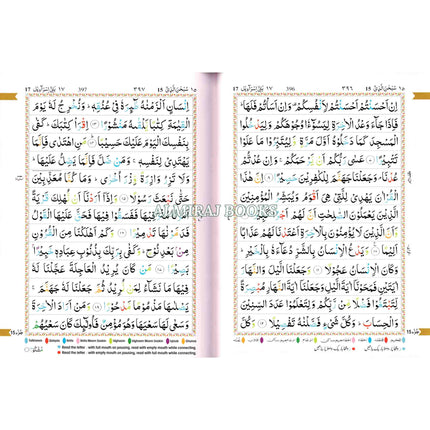 اِنْ اَحْسَنْتُمْ اَحْسَنْتُمْ لِاَنْفُسِكُمْ وَاِنْ اَسَاْتُمْ فَلَهَا
فَاِذَا جَآءَ وَعْدُ الْاٰخِرَةِ لِيَسُوْٓءٗا وُجُوْهَكُمْ وَلِيَدْخُلُوا
الْمَسْجِدَ كَمَا دَخَلُوْهُ اَوَّلَ مَرَّةٍ وَّلِيُتَبِّرُوْا مَا عَلَوْا
تَتْبِيْرًا عَسٰى رَبُّكُمْ اَنْ يَّرْحَمَكُمْ وَاِنْ عُدْتُّمْ
عُدْنَا وَجَعَلْنَا جَهَنَّمَ لِلْكٰفِرِيْنَ حَصِيْرًا اِنَّ هٰذَا
الْقُرْاٰنَ يَهْدِيْ لِلَّتِيْ هِيَ اَقْوَمُ وَيُبَشِّرُ الْمُؤْمِنِيْنَ
الَّذِيْنَ يَعْمَلُوْنَ الصّٰلِحٰتِ اَنَّ لَهُمْ اَجْرًا كَبِيْرًا وَّاَنَّ
الَّذِيْنَ لَا يُؤْمِنُوْنَ بِالْاٰخِرَةِ اَعْتَدْنَا لَهُمْ عَذَابًا
اَلِيْمًا وَيَدْعُ الْاِنْسَانُ بِالشَّرِّ دُعَآءَهٗ بِالْخَيْرِ
وَكَانَ الْاِنْسَانُ عَجُوْلًا وَجَعَلْنَا الَّيْلَ وَالنَّهَارَ
اٰيَتَيْنِ فَمَحَوْنَآ اٰيَةَ الَّيْلِ وَجَعَلْنَآ اٰيَةَ النَّهَارِ مُبْصِرَةً
لِّتَبْتَغُوْا فَضْلًا مِّنْ رَّبِّكُمْ وَلِتَعْلَمُوْا عَدَدَ السِّنِيْنَ
وَالْحِسَابَ وَكُلَّ شَيْءٍ فَصَّلْنٰهُ تَفْصِيْلًا وَكُلَّ
اِنْسَانٍ اَلْزَمْنٰهُ طٰٓئِرَهٗ فِيْ عُنُقِهٖ وَنُخْرِجُ لَهٗ يَوْمَ
الْقِيٰمَةِ كِتٰبًا يَّلْقٰىهُ مَنْشُوْرًا اِقْرَاْ كِتٰبَكَ كَفٰى
بِنَفْسِكَ الْيَوْمَ عَلَيْكَ حَسِيْبًا مَنِ اهْتَدٰى فَاِنَّمَا
يَهْتَدِيْ لِنَفْسِهٖ وَمَنْ ضَلَّ فَاِنَّمَا يَضِلُّ عَلَيْهَا
وَلَا تَزِرُ وَازِرَةٌ وِّزْرَ اُخْرٰى وَمَا كُنَّا مُعَذِّبِيْنَ
حَتّٰى نَبْعَثَ رَسُوْلًا وَاِذَآ اَرَدْنَآ اَنْ نُّهْلِكَ قَرْيَةً
اَمَرْنَا مُتْرَفِيْهَا فَفَسَقُوْا فِيْهَا فَحَقَّ عَلَيْهَا الْقَوْلُ
فَدَمَّرْنٰهَا تَدْمِيْرًا وَكَمْ اَهْلَكْنَا مِنَ الْقُرُوْنِ
مِنْۢ بَعْدِ نُوْحٍ وَكَفٰى بِرَبِّكَ بِذُنُوْبِ عِبَادِهٖ خَبِيْرًۢا
بَصِيْرًا مَنْ كَانَ يُرِيْدُ الْعَاجِلَةَ عَجَّلْنَا لَهٗ
فِيْهَا مَا نَشَآءُ لِمَنْ نُّرِيْدُ ثُمَّ جَعَلْنَا لَهٗ جَهَنَّمَ
يَصْلٰىهَا مَذْمُوْمًا مَّدْحُوْرًا وَمَنْ اَرَادَ الْاٰخِرَةَ
وَسَعٰى لَهَا سَعْيَهَا وَهُوَ مُؤْمِنٌ فَاُولٰٓئِكَ كَانَ سَعْيُهُمْ
ALMERAJ BOOKS